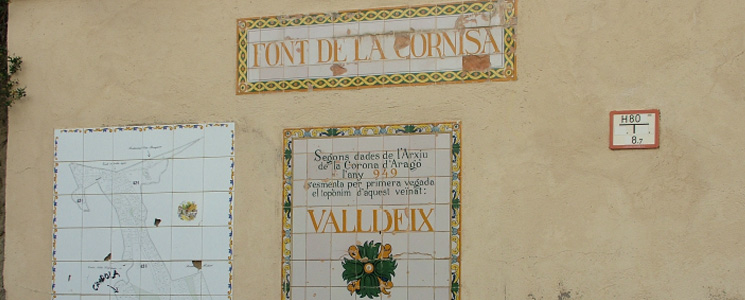 FONT DE LA CORNISA
Segons dades de l'Arxiu
de la Corona d'Aragó
l'any 949
s'esmenta per primera vegada
el topònim d'aquest veïnat:
VALLDEIX
H80
8.7